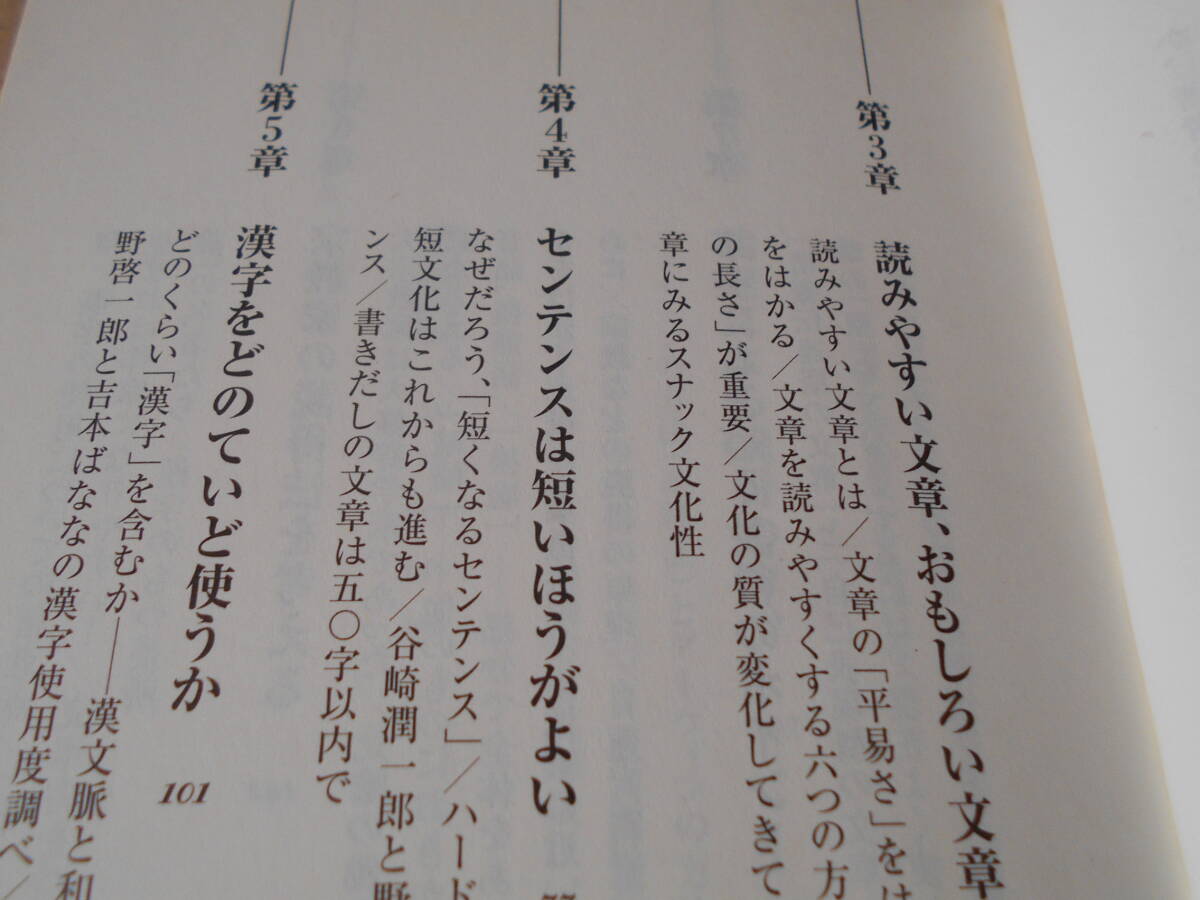 第3章
読みやすい文章、おもしろい文章
読みやすい文章とは/文章の「平易さ」をは
をはかる/文章を読みやすくする六つの方
の長さ」が重要/文化の質が変化してきて
章にみるスナック文化性
第4章
センテンスは短いほうがよい
なぜだろう、「短くなるセンテンス」/ハード
短文化はこれからも進む/谷崎潤一郎と野
ンス/書きだしの文章は五〇字以内で
第5章
漢字をどのていど使うか
101
どのくらい「漢字」を含むか——漢文脈と和
野啓一郎と吉本ばななの漢字使用度調べ/